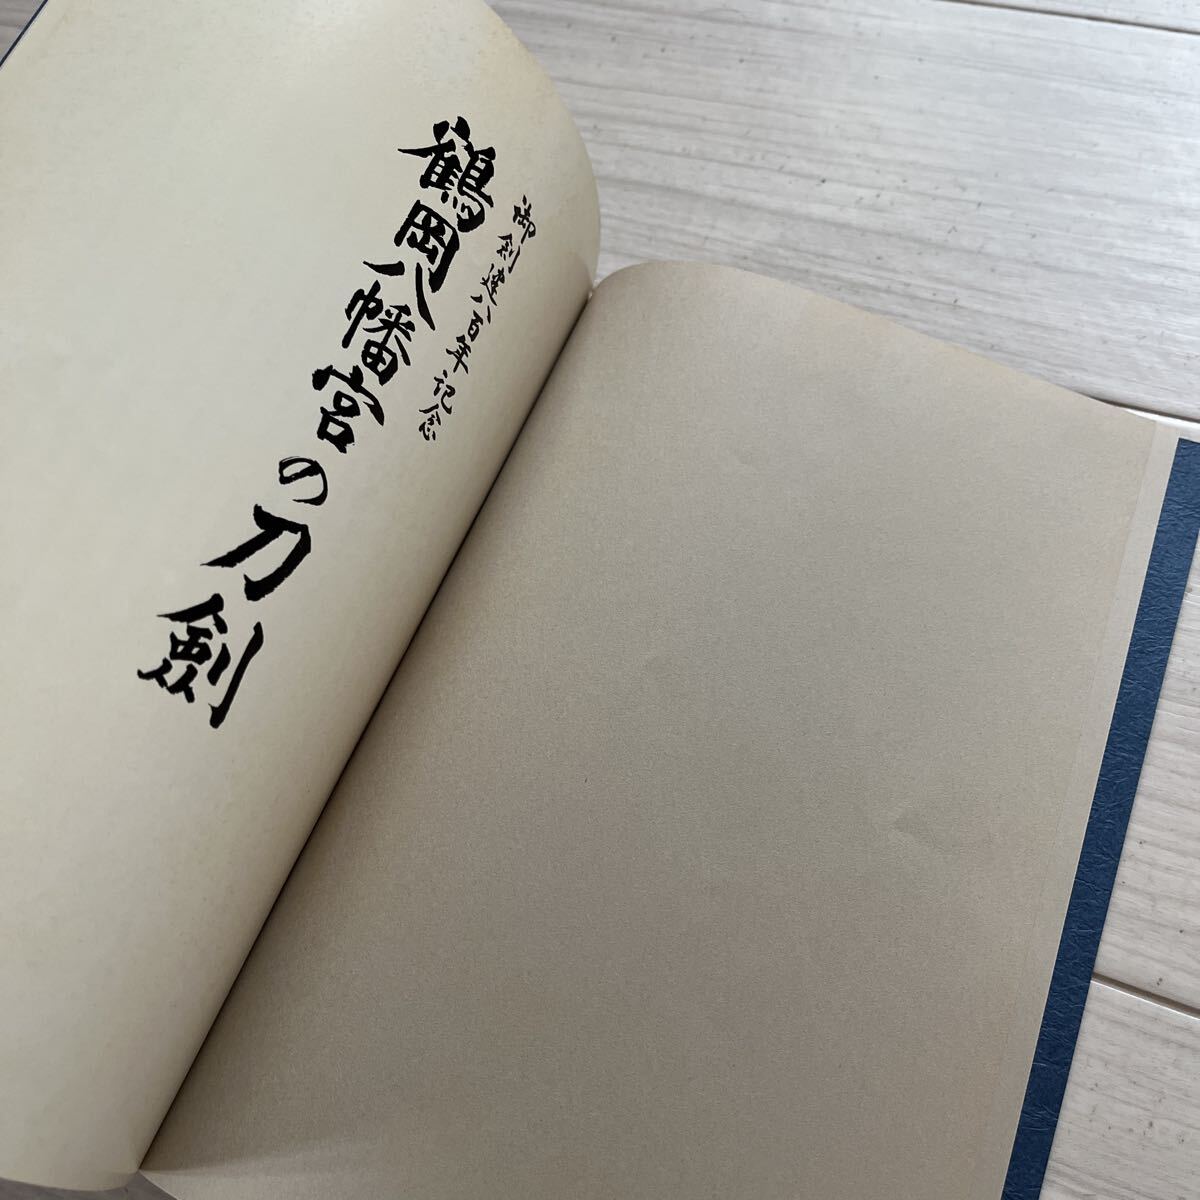 御創建八百年記念
鶴岡八幡宮の刀劍